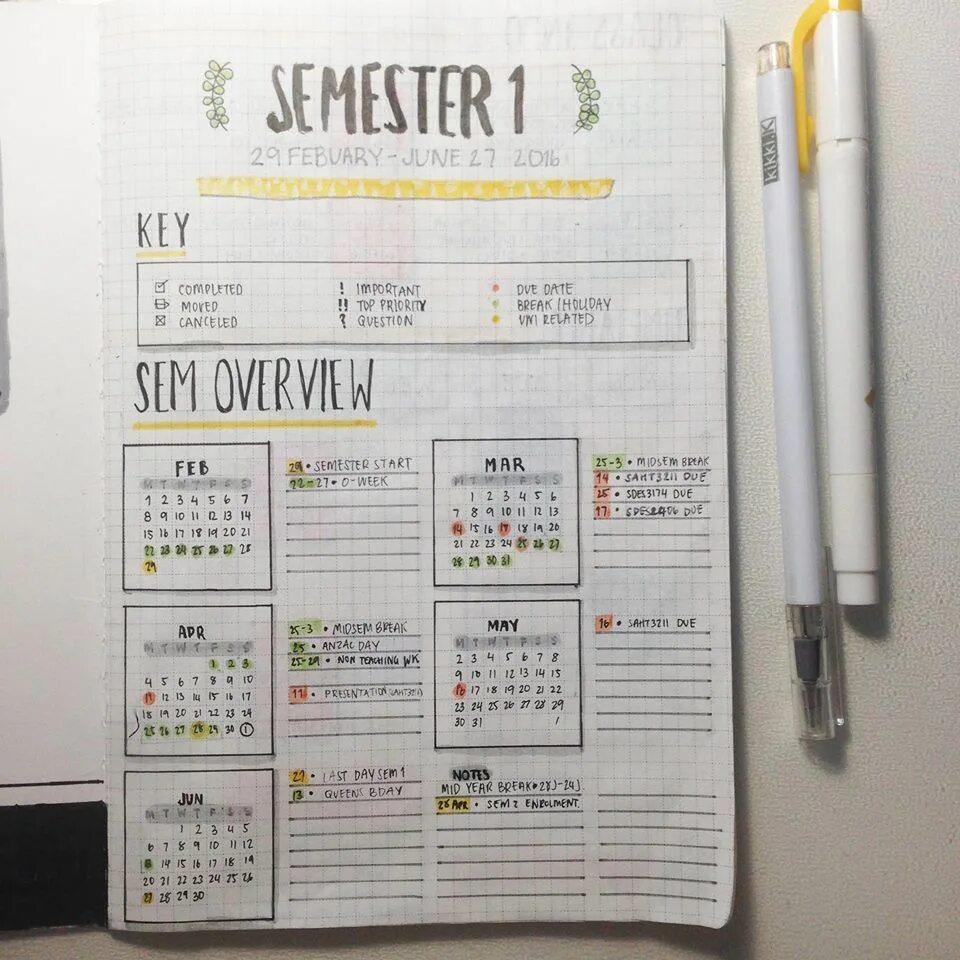 SEMESTER 1
29 FEBUARY - JUNE 27 2016
KEY
COMPLETED
MOVED
CANCELED
! IMPORTANT
!! TOP PRIORITY
? QUESTION
DUE DATE
BREAK/HOLIDAY
UNI RELATED
SEM OVERVIEW
FEB
M T W T F S S
1 2 3 4 5 6 7
8 9 10 11 12 13 14
15 16 17 18 19 20 21
22 23 24 25 26 27 28
29
29 • SEMESTER START
22-27 • O-WEEK
MAR
M T W T F S S
1 2 3 4 5 6
7 8 9 10 11 12 13
14 15 16 17 18 19 20
21 22 23 24 25 26 27
28 29 30 31
25-3 • MIDSEM BREAK
14 • SAHT3211 DUE
25 • SDES3174 DUE
17 • SDES2406 DUE
APR
M T W T F S S
1 2 3
4 5 6 7 8 9 10
11 12 13 14 15 16 17
18 19 20 21 22 23 24
25 26 27 28 29 30 1
25-3 • MIDSEM BREAK
25 • ANZAC DAY
25-29 • NON TEACHING WK
11 • PRESENTATION (SAHT3211)
MAY
M T W T F S S
2 3 4 5 6 7 8
9 10 11 12 13 14 15
16 17 18 19 20 21 22
23 24 25 26 27 28 29
30 31 1
16 • SAHT3211 DUE
JUN
M T W T F S S
1 2 3 4 5
6 7 8 9 10 11 12
14 15 16 17 18 19
20 21 22 23 24 25 26
27 28 29 30
27 • LAST DAY SEM 1
13 • QUEENS BDAY
NOTES
MID YEAR BREAK • 28J-24J
28 APR • SEM 2 ENROLMENT.
kikki.K